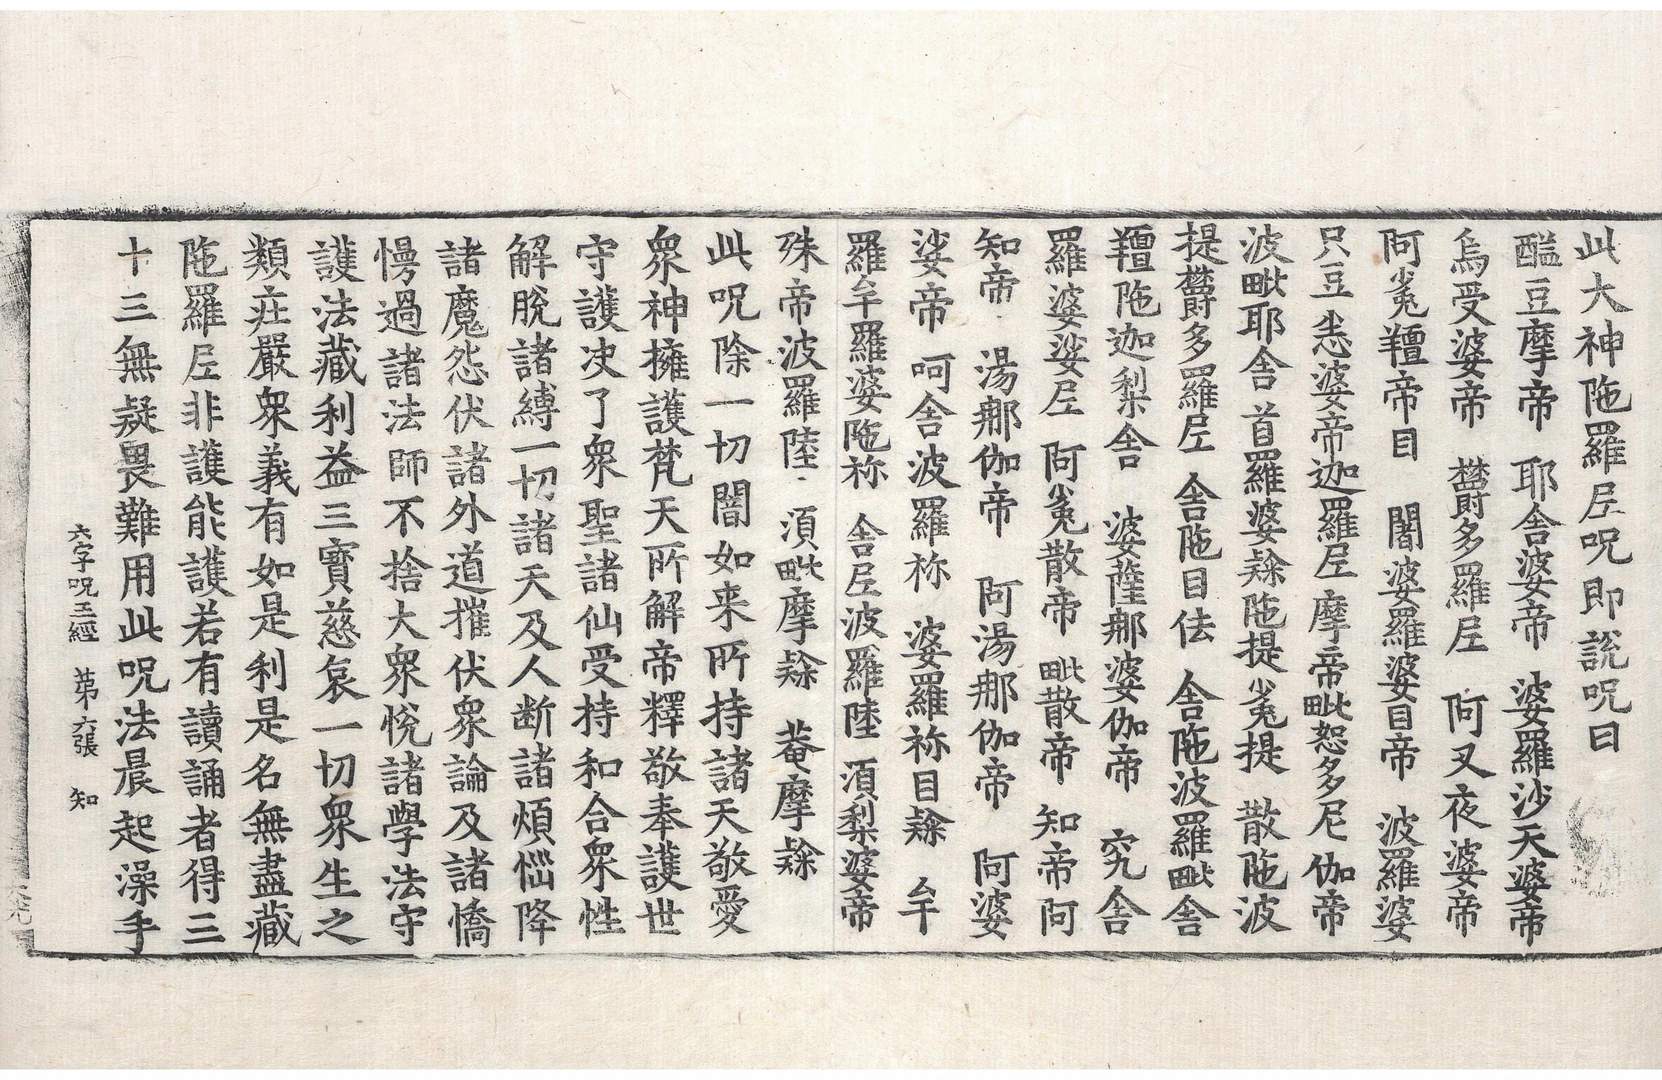 此大神陁羅尼呪即說呪曰
醯豆摩帝 耶舍婆帝 婆羅沙天婆帝
烏受婆帝 欝多羅尼 阿叉夜婆帝
阿㲋羶帝目 闍婆羅婆目帝 波羅婆
只豆恚婆帝迦羅尼 摩帝毗恕多尼 伽帝
波毗耶舍 首羅婆𨅖陁提㲋提 散陁波
提欝多羅尼 舍陁目佉 舍陁波羅毗舍
羶陁迦梨舍 婆薩那婆伽帝 究舍
羅婆娑尼 阿㲋散帝 毗散帝 知帝阿
知帝 湯那伽帝 阿湯那伽帝 阿婆
娑帝 呵舍波羅祢 婆羅祢目𨅖 厶干
羅厶干羅婆陁祢 舍尼波羅陸 湏梨婆帝
殊帝波羅陸 湏毗摩𨅖 菴摩𨅖
此呪除一切闇如来所持諸天敬愛
衆神擁護梵天所解帝釋敬奉護世
守護决了衆聖諸仙受持和合衆性
解脫諸縛一切諸天及人断諸煩惱降
諸魔怨伏諸外道摧伏衆論及諸憍
慢過諸法師不捨大衆悅諸學法守
護法藏利益三寶慈哀一切衆生之
類莊嚴衆義有如是利是名無盡藏
陁羅尼非護能護若有讀誦者得三
十三無疑畏難用此呪法晨起澡手
六字呪王經 苐六張 知